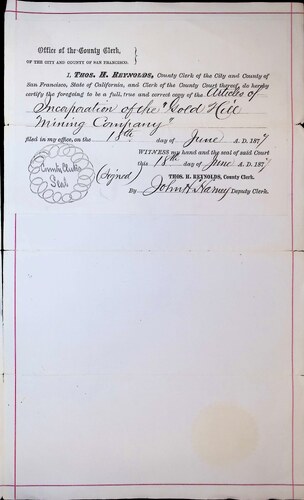 Office of the County Clerk,
OF THE CITY AND COUNTY OF SAN FRANCISCO.
I. THOS. H. REYNOLDS, County Clerk of the City and County of
San Francisco, State of California, and Clerk of the County Court thereof, do hereby
certify the foregoing to be a full, true and correct copy of the Articles of
Incorporation of the "Gold Hill
Mining Company"
filed in my office, on the 18th day of June A. D. 1877
WITNESS my hand and the seal of said Court
this 18th day of June A. D. 1877
County Clerks
Seal
(Signed) THOS. H. REYNOLDS, County Clerk.
By John H. Harney Deputy Clerk.